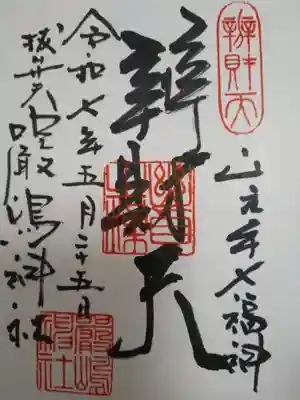 辨財天
山之手七福神
辨財天
令和七年五月二十五日
嚴嶋神社
嚴嶋神社